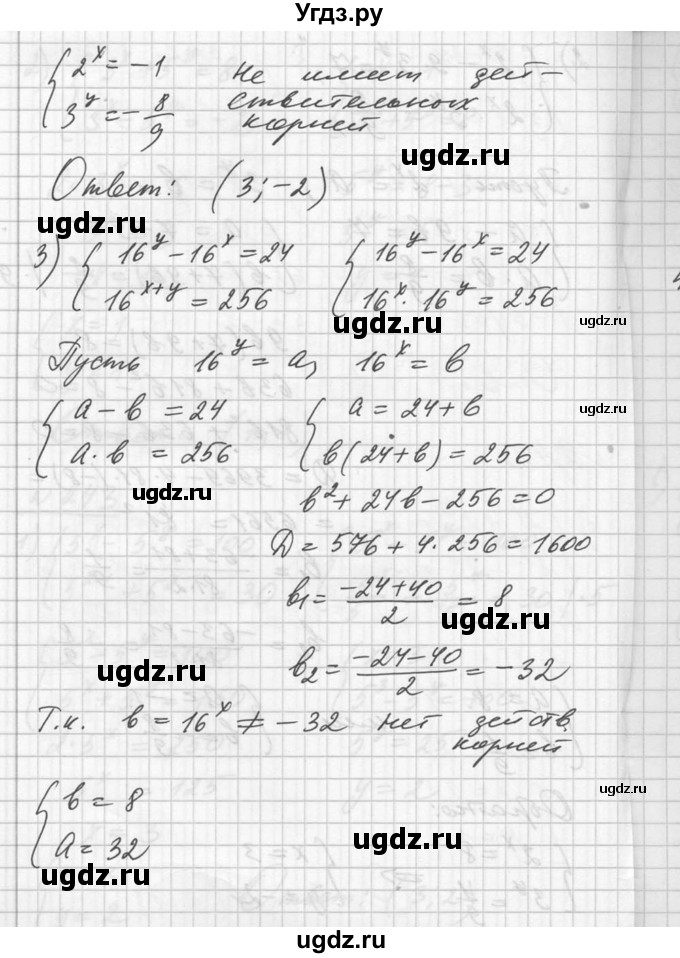 Угдз.ру
{ 2^x = -1   не имеет дей-
{ 3^y = -8/9   ствительных
корней
ugdz.ru
Ответ: (3; -2)
ugdz.ru
3) { 16^y - 16^x = 24   { 16^y - 16^x = 24
{ 16^(x+y) = 256   { 16^x · 16^y = 256
ugdz.ru
ugdz.ru
Пусть 16^y = a, 16^x = b
{ a - b = 24   { a = 24 + b
{ a · b = 256   { b(24+b) = 256
ugdz.ru
b² + 24b - 256 = 0
Д = 576 + 4·256 = 1600
b₁ = (-24+40)/2 = 8
ugdz.ru
ugdz.ru
b₂ = (-24-40)/2 = -32
Т.к. b = 16^x ≠ -32 нет действ.
корней
ugdz.ru
{ b = 8
{ a = 32
ugdz.ru
ugdz.ru
ugdz.ru